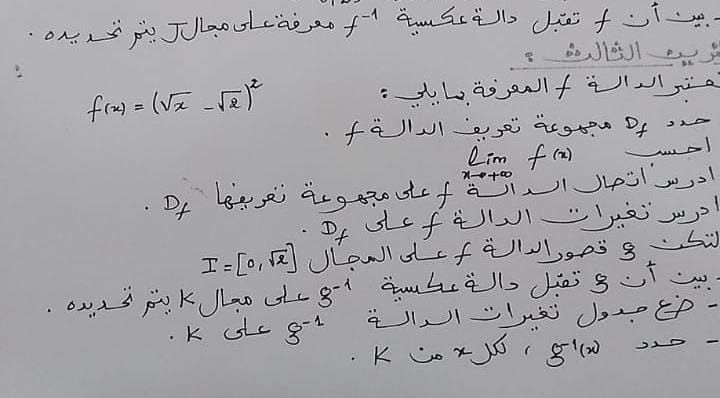 - بين أن f تقبل دالة عكسية f⁻¹ معرفة على مجال J يتم تحديده .
الثالث :
نعتبر الدالة f المعرفة بما يلي : f(x) = (√x - √2)²
حدد Df مجموعة تعريف الدالة f .
احسب lim f(x) x→+∞
ادرس اتصال الدالة f على مجموعة تعريفها Df .
ادرس تغيرات الدالة f على Df .
لتكن g قصور الدالة f على المجال I = [0, √2]
- بين أن g تقبل دالة عكسية g⁻¹ على مجال K يتم تحديده .
- ضع جدول تغيرات الدالة g⁻¹ على K .
- حدد g⁻¹(x) ، لكل x من K .